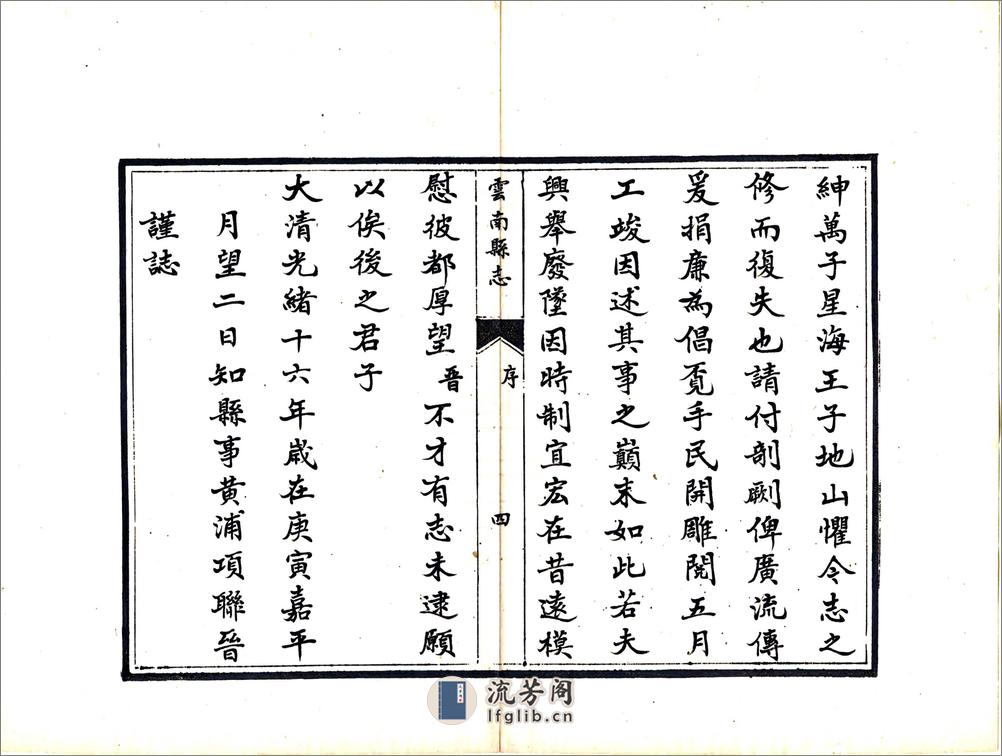 紳萬子星海王子地山懼令志之
修而復失也請付剞劂俾廣流傳
爰捐廉為倡覔手民開雕閱五月
工竣因述其事之巔末如此若夫
興舉廢墜因時制宜宏在昔遠模
雲南縣志
序
四
慰彼都厚望晉不才有志未逮願
以俟後之君子
大清光緒十六年歲在庚寅嘉平
月望二日知縣事黃浦項聯晉
謹誌
流芳阁
lfglib.cn